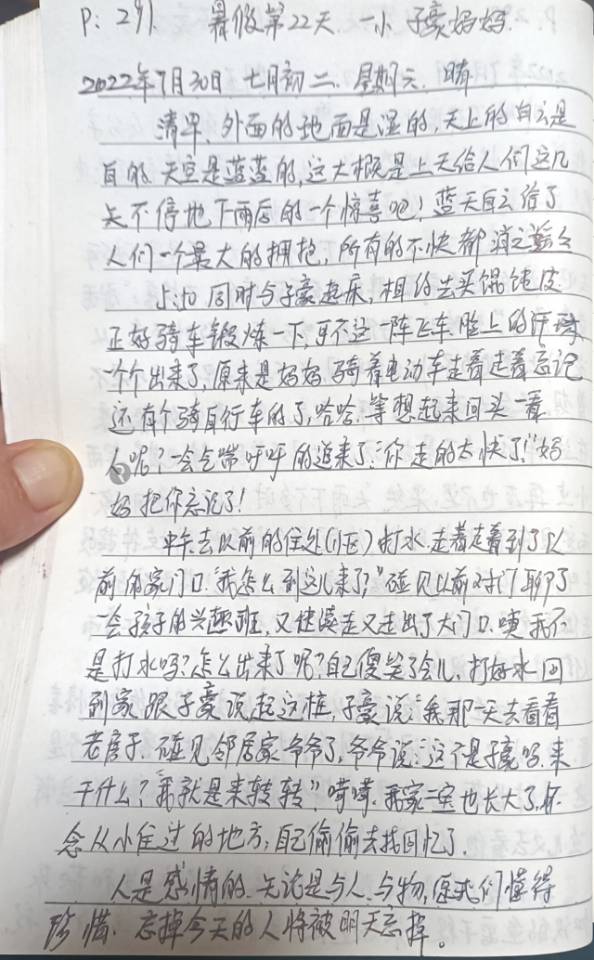 P: 291. 暑假第22天 一小 子豪妈妈.
2022年7月30日 七月初二. 星期六. 晴
清早、外面的地面是湿的,天上的白云是
白的.天空是蓝蓝的,这大概是上天给人们这几
天不停地下雨后的一个惊喜吧!蓝天白云给了
人们一个最大的拥抱,所有的不快都消之
同时与子豪起床,相约去买馄饨皮
正好骑车锻炼一下,可不这一阵飞车.脸上的汗珠
一个个出来了,原来是妈妈骑着电动车走着走着忘记
还有个骑自行车的了,哈哈.等想起来回头一看
人呢?一会气喘呼呼的追来了:"你走的太快了."妈
妈把你忘记了!
中午去以前的住处(小区)打水.走着走着到了以
前的家门口."我怎么到这儿来了"碰见以前对门聊了
一会孩子的兴趣班,又继续走又走出了大门口.咦我不
是打水吗?怎么出来了呢?自己傻笑了会儿、打好水回
到家跟子豪说起这桩,子豪说:"我那一天去看看
老房子.碰见邻居家爷爷了,爷爷说:这个是子豪吗.来
干什么?"我就是来转转"嘻嘻.我家二宝也长大了.怀
念从小住过的地方,自己偷偷去找回忆了.
人是感情的.无论是与人、与物,应我们懂得
珍惜、忘掉今天的人将被明天忘掉。